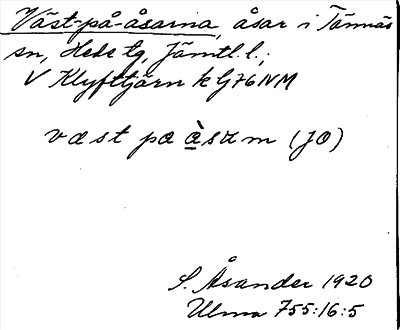 Väst-på-åsarna, åsar i Tännäs
sn, Hede tg, Jämtl. l.;
V Klyfttjärn k G76NM
væst pæ åsæm (JO)
S. Åsander 1920
Ulma 755:16:5